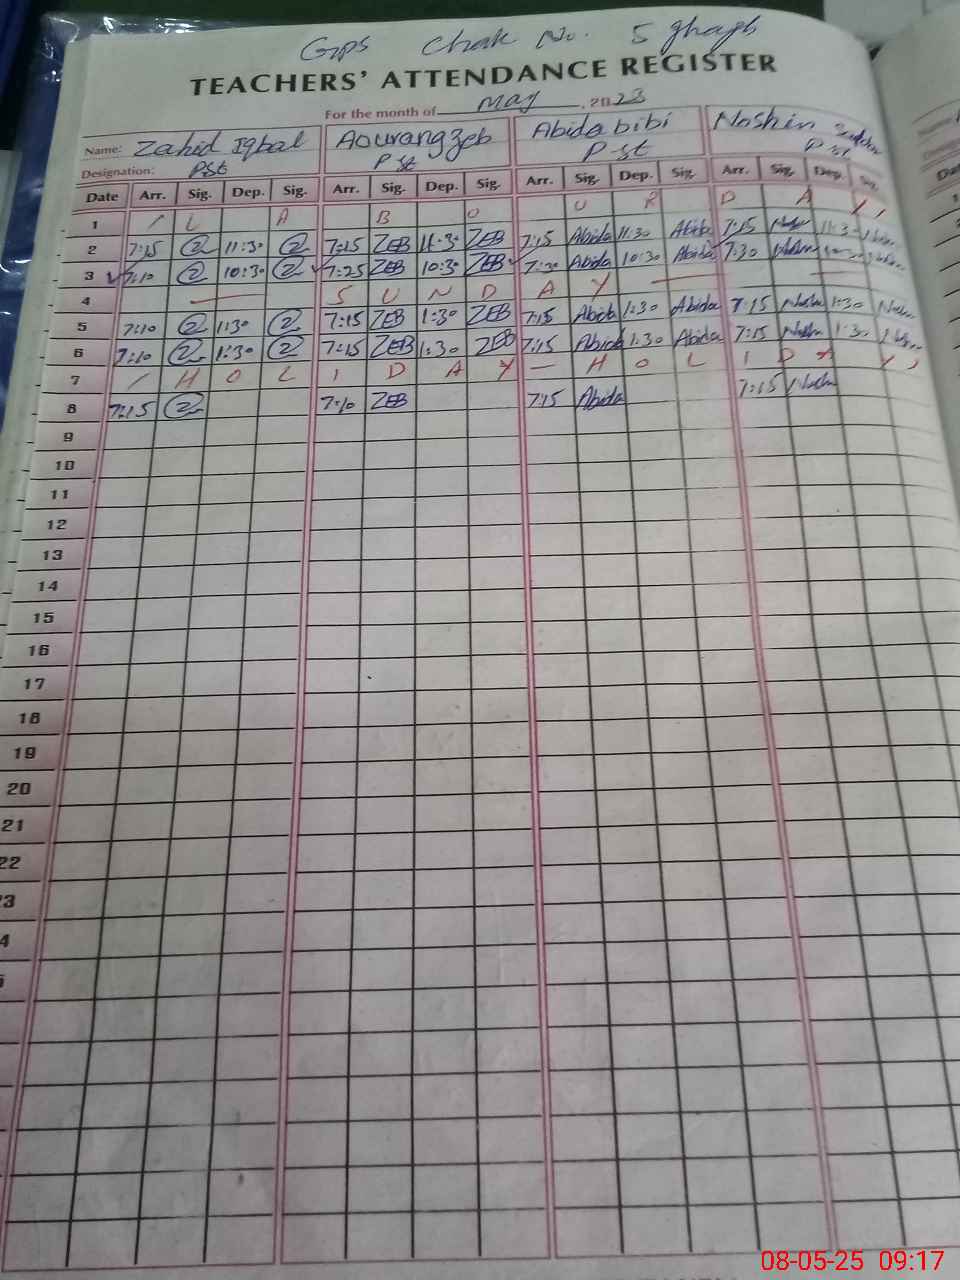 GPS Chak No. 5 ghagh
TEACHERS' ATTENDANCE REGISTER
For the month of May, 2023
Name: Zahid Iqbal Aourangzeb Abida bibi Noshin
Designation: PSt PSt PSt PSt
Date Arr. Sig. Dep. Sig. Arr. Sig. Dep. Sig. Arr. Sig. Dep. Sig. Arr. Sig. Dep. Sig.
1 / L A B O U R D A Y /
2 7:15 11:30 7:15 ZEB 11:30 ZEB 7:15 Abida 11:30 Abida 7:15 11:30
3 7:10 10:30 7:25 ZEB 10:30 ZEB 7:20 Abida 10:30 Abida 7:30
4 — S U N D A Y —
5 7:10 1:30 7:15 ZEB 1:30 ZEB 7:15 Abida 1:30 Abida 7:15 1:30
6 7:10 1:30 7:15 ZEB 1:30 ZEB 7:15 Abida 1:30 Abida 7:15 1:30
7 / H O L I D A Y — H O L I D A Y /
8 7:15 7:10 ZEB 7:15 Abida 7:15
9
10
11
12
13
14
15
16
17
18
19
20
21
22
23
08-05-25 09:17